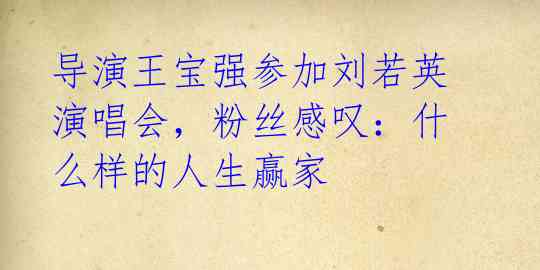 导演王宝强参加刘若英
演唱会，粉丝感叹：什
么样的人生赢家